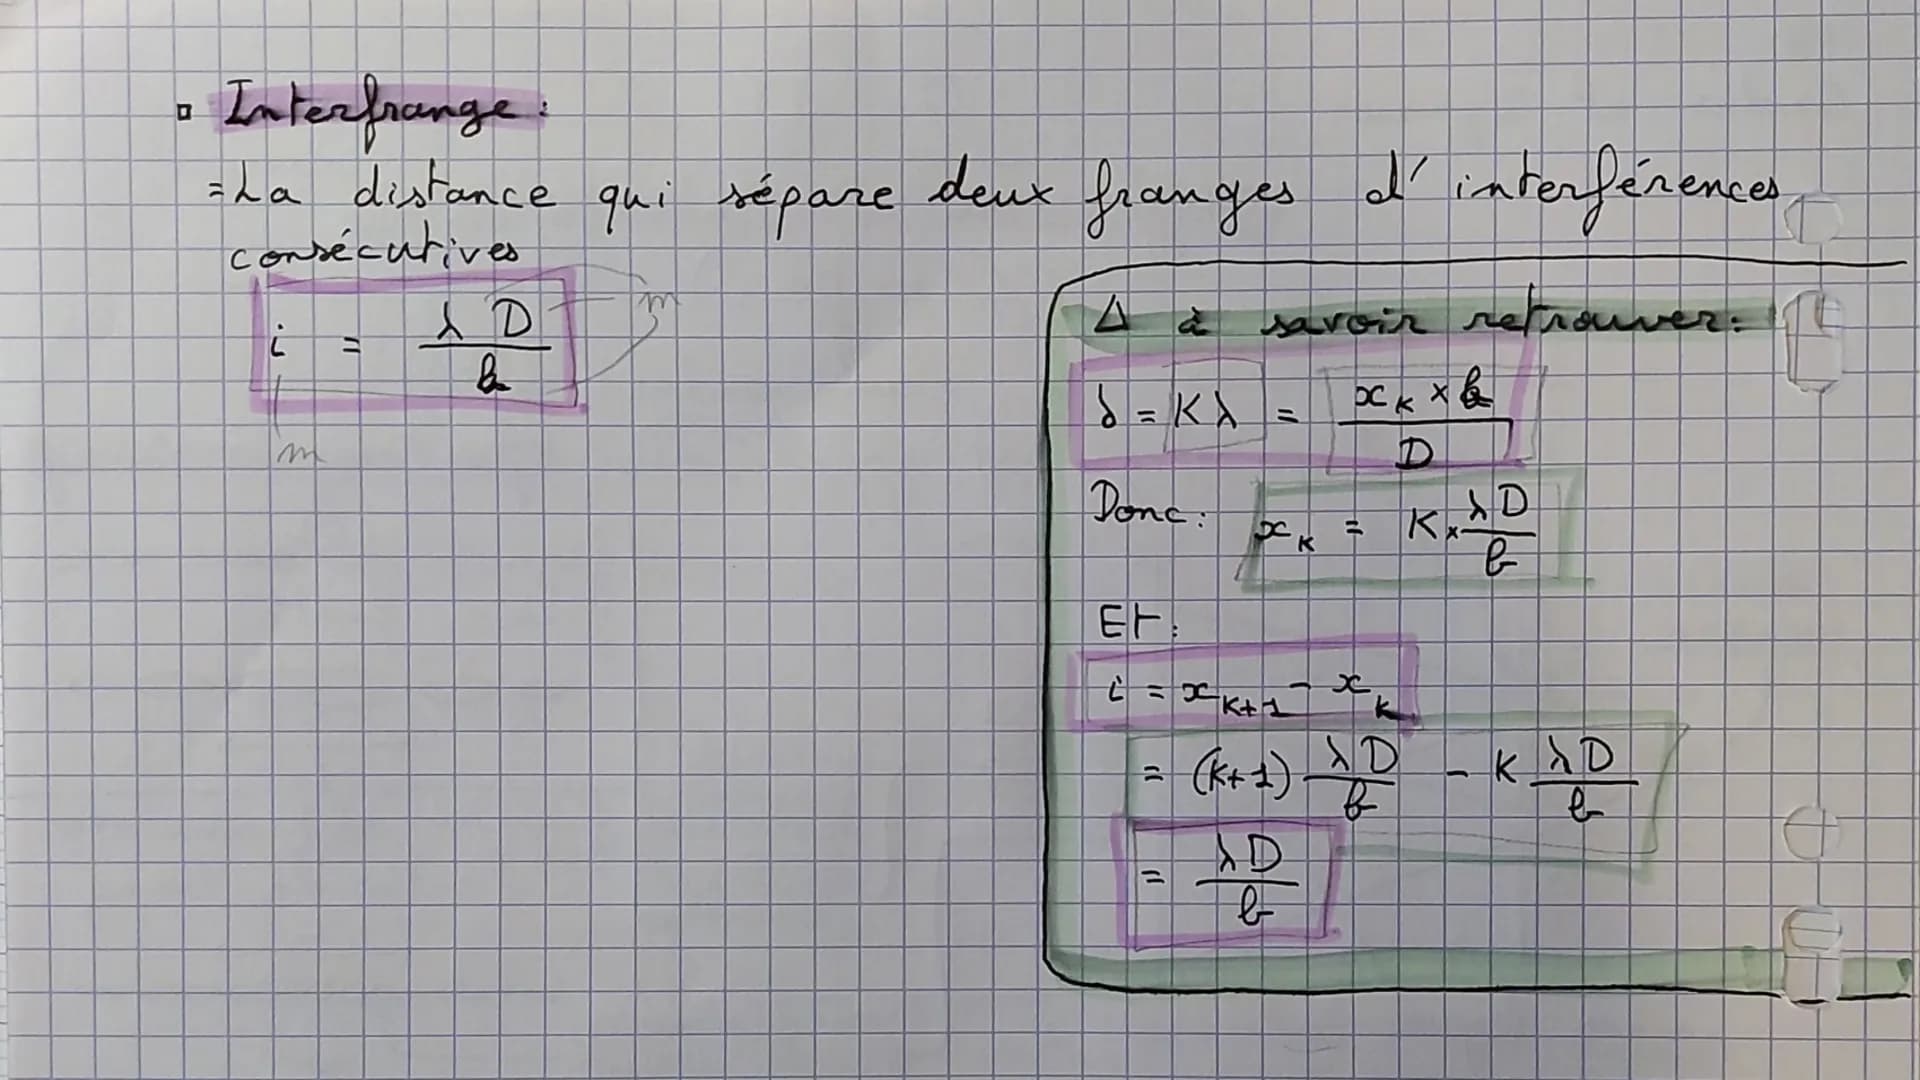 ▫ Interfrange :
=La distance qui sépare deux franges d'interférences
consécutives
i = λD/b
m
m
Δ à savoir retrouver :
δ = Kλ = (x_K × b)/D
Donc : x_K = K × λD/b
Et :
i = x_{K+1} - x_k
= (k+1) λD/b - K λD/b
= λD/b